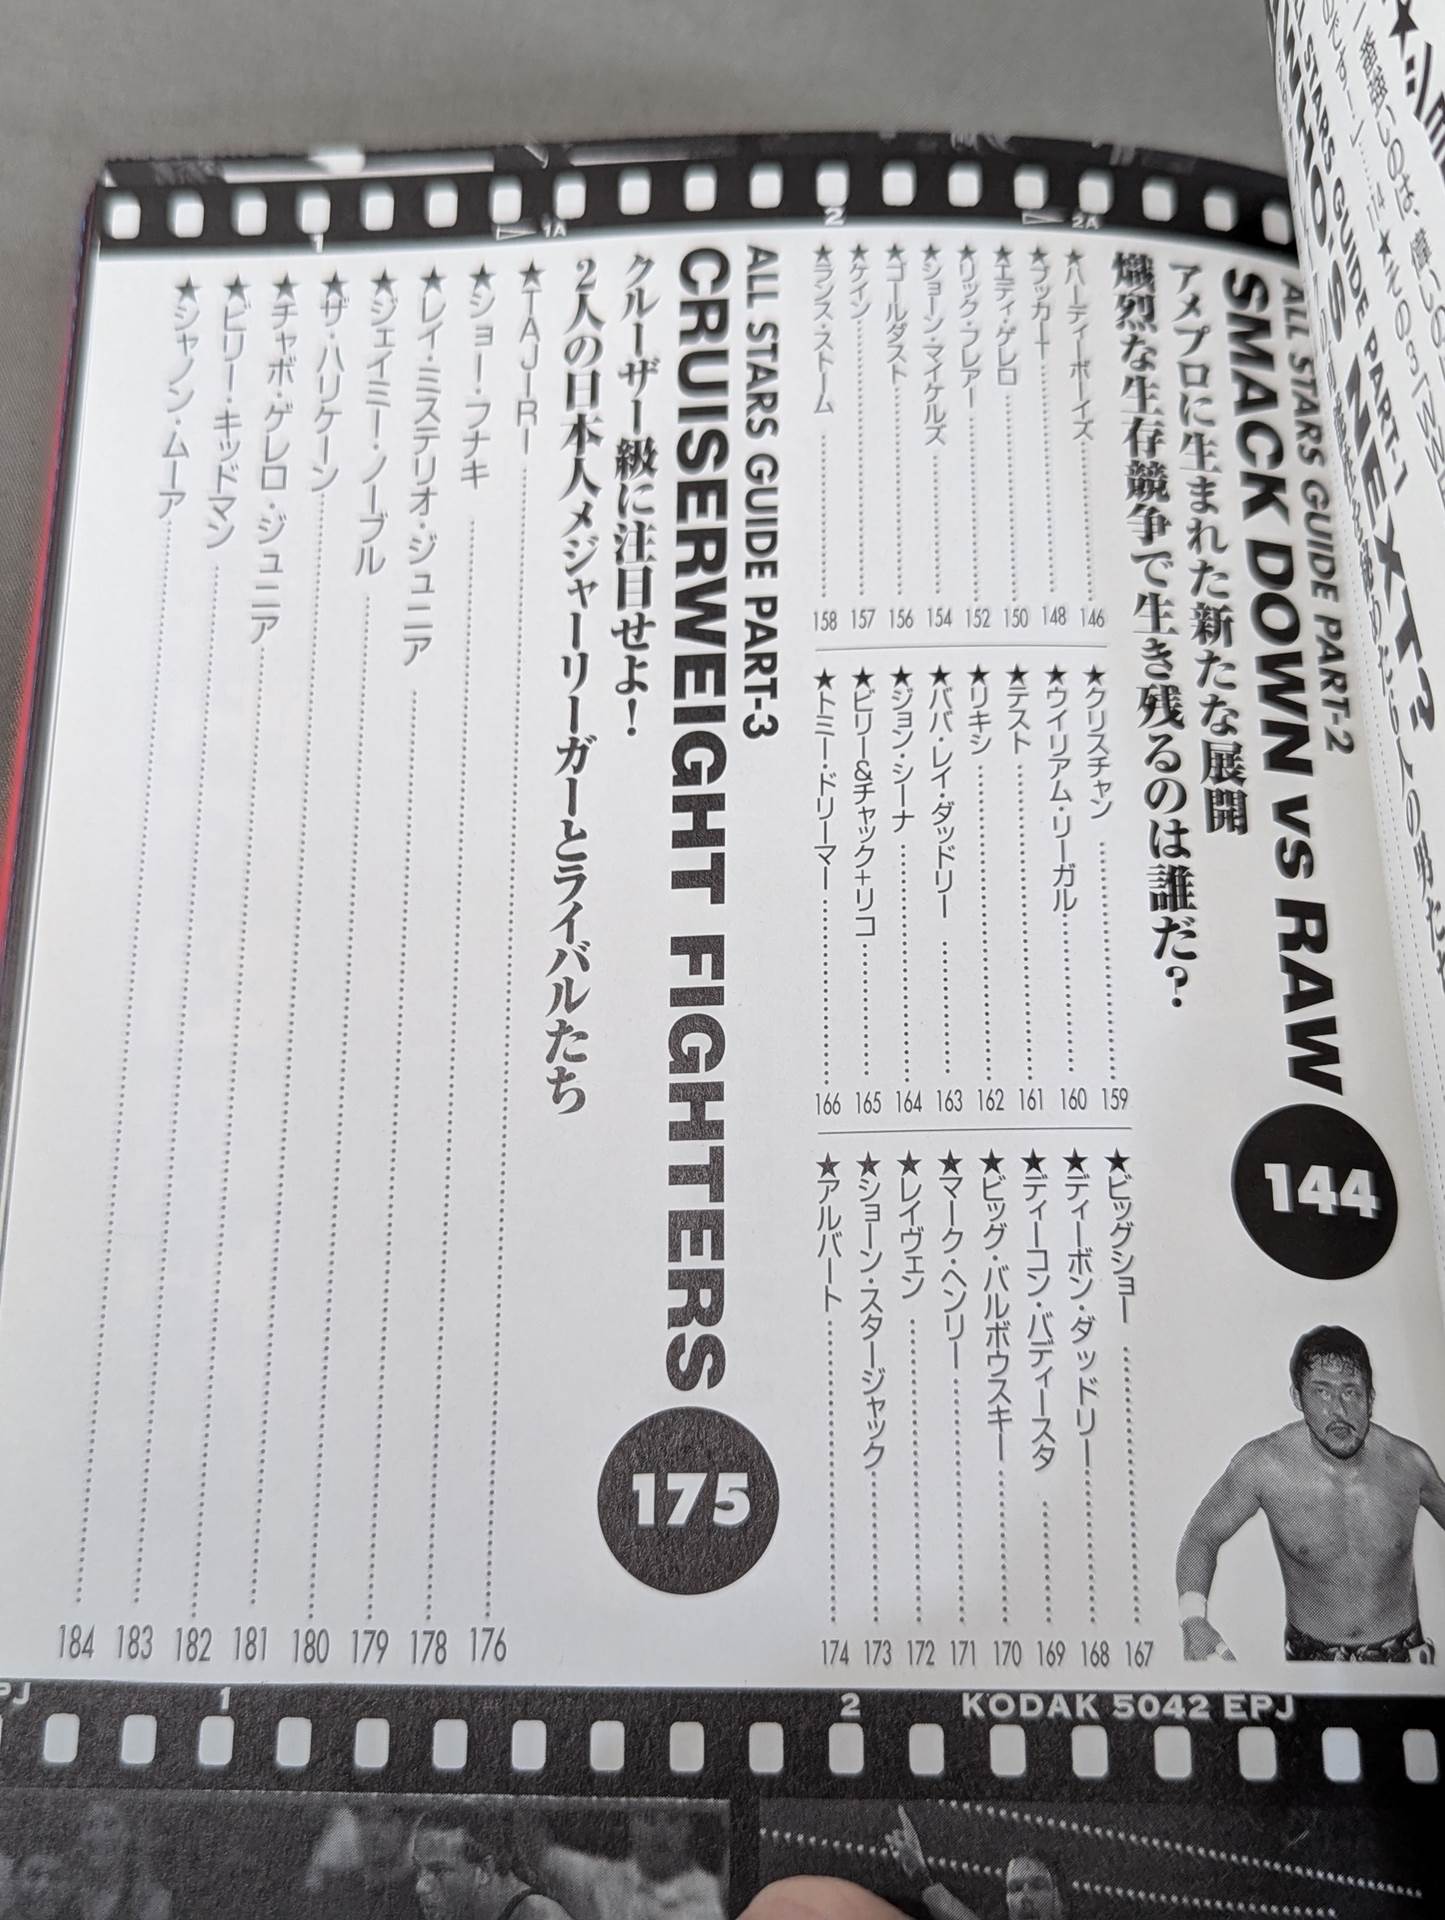 ALL STARS GUIDE PART-1
NEXT?
ALL STARS GUIDE PART-2
SMACK DOWN vs RAW
144
アメプロに生まれた新たな展開
熾烈な生存競争で生き残るのは誰だ?
★ハーディーボーイズ 146
★ブッカーT 148
★エディ・ゲレロ 150
★リック・フレアー 152
★ショーン・マイケルズ 154
★ゴールダスト 156
★ケイン 157
★ランス・ストーム 158
★クリスチャン 159
★ウイリアム・リーガル 160
★テスト 161
★リキシ 162
★ババ・レイ・ダッドリー 163
★ジョン・シーナ 164
★ビリー&チャック+リコ 165
★トミー・ドリーマー 166
★ビッグショー 167
★ディーボン・ダッドリー 168
★ディーコン・バディースタ 169
★ビッグ・バルボウスキー 170
★マーク・ヘンリー 171
★レイヴェン 172
★ショーン・スタージャック 173
★アルバート 174
ALL STARS GUIDE PART-3
CRUISERWEIGHT FIGHTERS
175
クルーザー級に注目せよ!
2人の日本人メジャーリーガーとライバルたち
★TAJIRI 176
★ショー・フナキ 178
★レイ・ミステリオ・ジュニア 179
★ジェイミー・ノーブル 180
★ザ・ハリケーン 181
★チャボ・ゲレロ・ジュニア 182
★ビリー・キッドマン 183
★シャノン・ムーア 184
1
1A
2
2A
1
2
KODAK 5042 EPJ